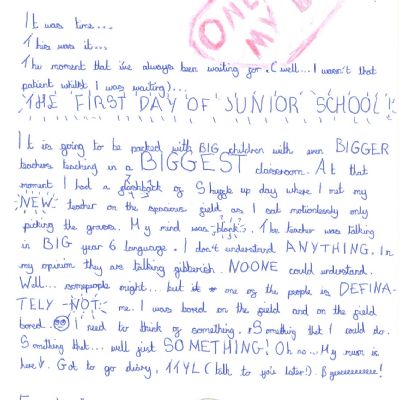 ONE
MY D
It was time...
This was it...
The moment that ive always been waiting for. (well... I wasn't that
patient whilst I was waiting)...
THE FIRST DAY OF JUNIOR SCHOOL!
It is going to be packed with BIG children with even BIGGER
teachers teaching in a BIGGEST classroom. At that
moment I had a flashback of Shuffle up day where I met my
NEW teacher on the spacious field as I sat motionlessly only
picking the grass. My mind was blank. The teacher was talking
in BIG year 6 language. I don't understand ANYTHING. In
my opinion they are talking gibberish. NOONE could understand.
Well... somepeople might... but one of the people is DEFINA-
TELY -NOT- me. I was bored on the field and on the field
bored. I need to think of something. Something that I could do.
Something that... well just SOMETHING! Oh no... My mum is
here. Got to go diary, TTYL (talk to you later!). Byeeeeeeeee!